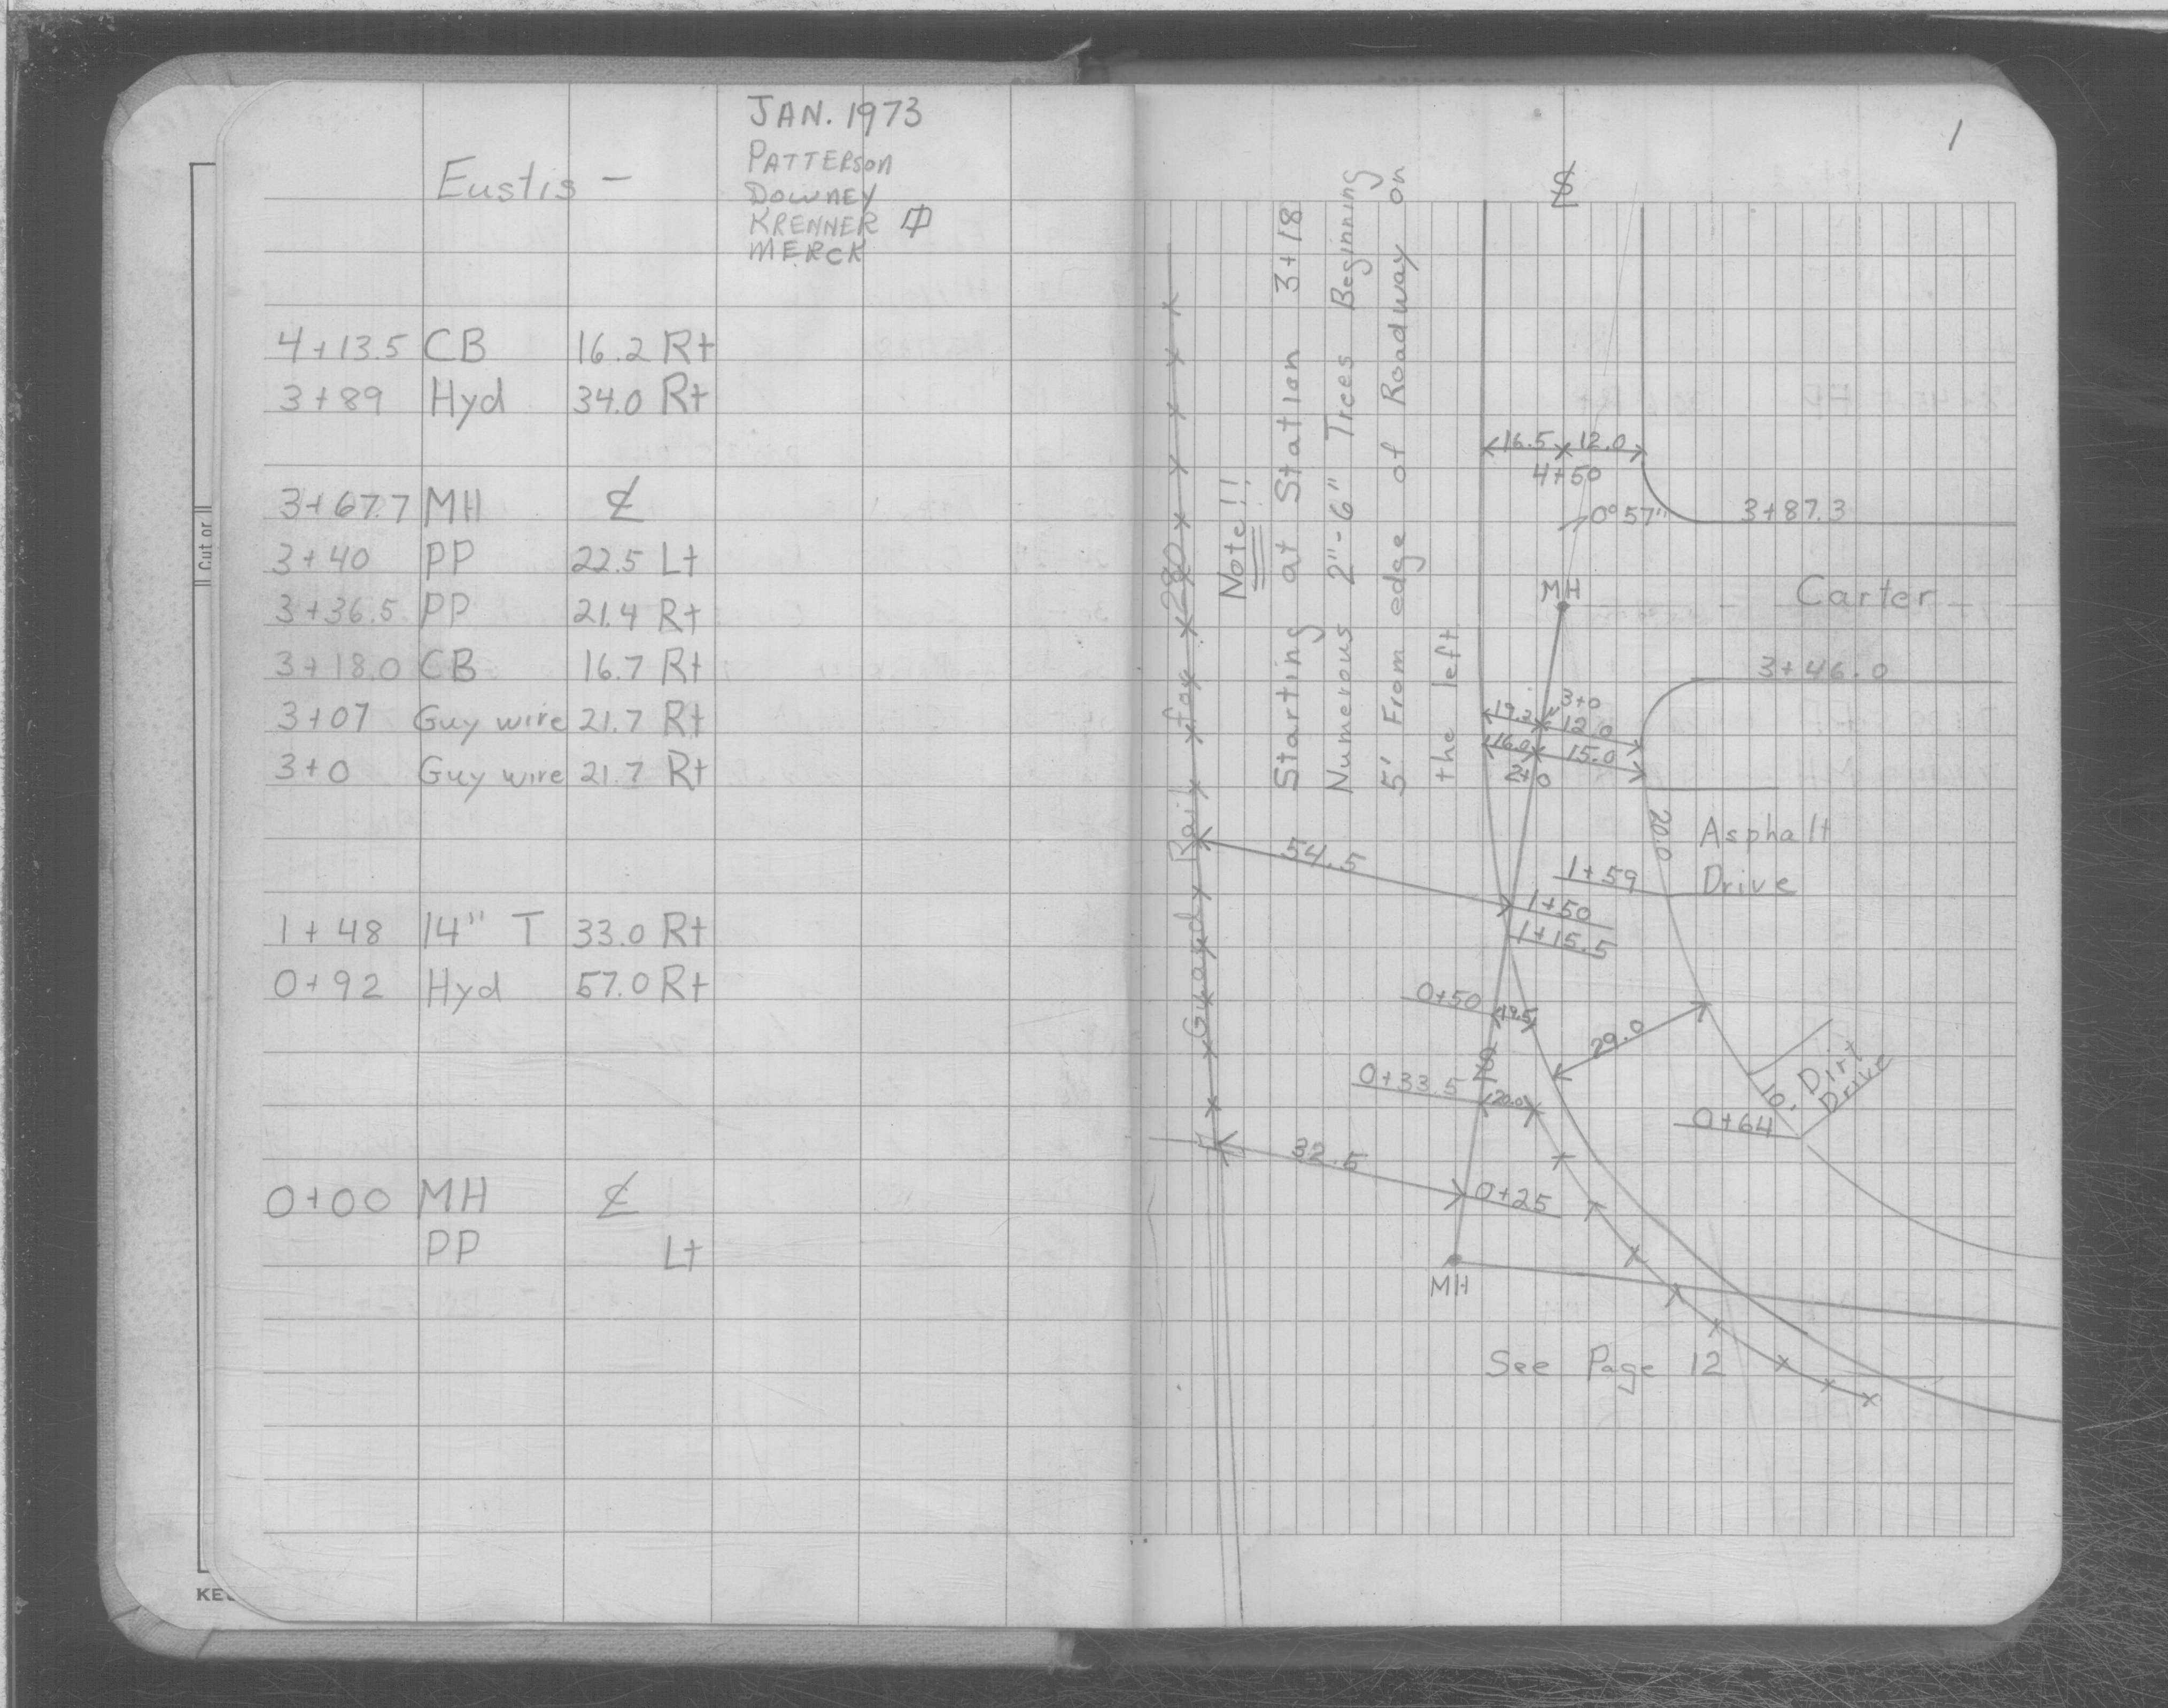 JAN. 1973
PATTERSON
DOWNEY
KRENNER
MERCK
Eustis -
4+13.5 CB 16.2 Rt
3+89 Hyd 34.0 Rt
3+67.7 MH ℄
3+40 PP 22.5 Lt
3+36.5 PP 21.4 Rt
3+18.0 CB 16.7 Rt
3+07 Guy wire 21.7 Rt
3+0 Guy wire 21.7 Rt
1+48 14" T 33.0 Rt
0+92 Hyd 57.0 Rt
0+00 MH ℄
PP Lt
Cut or
1
℄
Note!!
Starting at Station 3+18
Numerous 2"-6" Trees Beginning
5' From edge of Roadway on
the left
Guard Rail for 280
16.5 12.0
4+50
0°57"
3+87.3
MH
Carter
3+46.0
3+0
19.2 12.0
16.0 15.0
2+0
20.0
Asphalt
Drive
54.5
1+59
1+50
1+15.5
0+50
19.5
29.0
0+33.5
20.0
10'
Dirt
Drive
0+64
32.5
0+25
MH
See Page 12